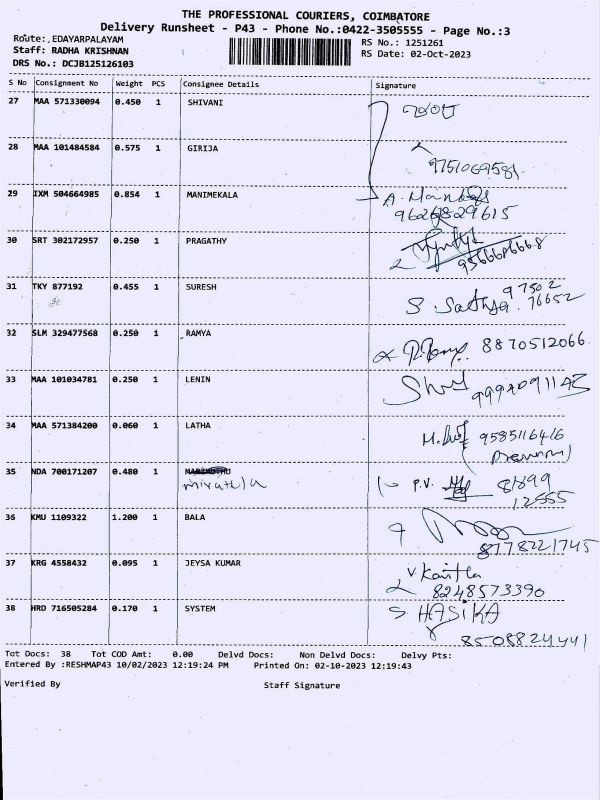 THE PROFESSIONAL COURIERS, COIMBATORE
Delivery Runsheet - P43 - Phone No.:0422-3505555 - Page No.:3
Route:,EDAYARPALAYAM
RS No.: 1251261
Staff: RADHA KRISHNAN
RS Date: 02-Oct-2023
DRS No.: DCJB125126103
S No Consignment No Weight PCS Consignee Details Signature
27 MAA 571330094 0.450 1 SHIVANI
28 MAA 101484584 0.575 1 GIRIJA
9751069581
29 IXM 504664985 0.854 1 MANIMEKALA
9626829615
30 SRT 302172957 0.250 1 PRAGATHY
31 TKY 877192 0.455 1 SURESH
97502
S. Sathya. 76652
32 SLM 329477568 0.250 1 RAMYA
8870512066
33 MAA 101034781 0.250 1 LENIN
34 MAA 571384200 0.060 1 LATHA
9585116416
35 NDA 700171207 0.480 1
P.V. 81899
12555
36 KMU 1109322 1.200 1 BALA
8778221745
37 KRG 4558432 0.095 1 JEYSA KUMAR
V Kavitha
8248573390
38 HRD 716505284 0.170 1 SYSTEM
S HASIKA
8508824441
Tot Docs: 38 Tot COD Amt: 0.00 Delvd Docs: Non Delvd Docs: Delvy Pts:
Entered By :RESHMAP43 10/02/2023 12:19:24 PM Printed On: 02-10-2023 12:19:43
Verified By Staff Signature